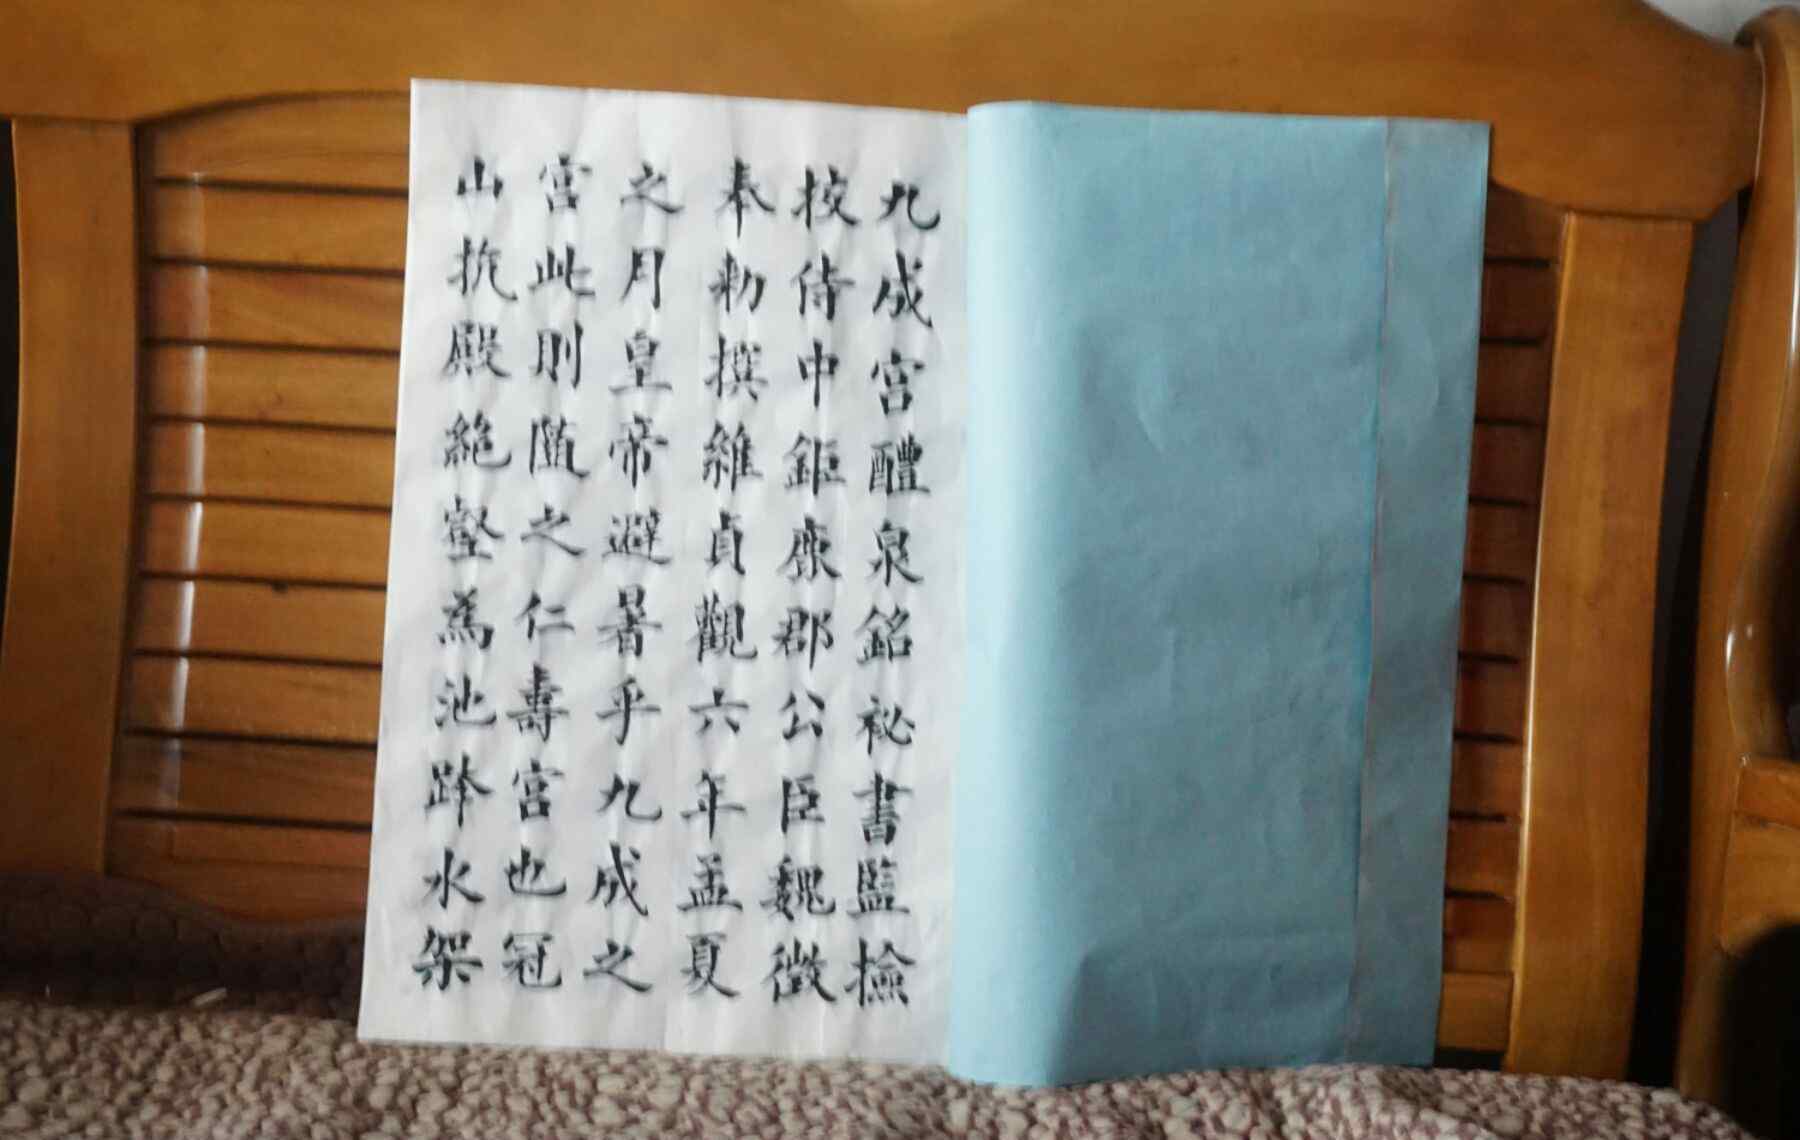 九成宫醴泉銘祕書監撿
挍侍中鉅鹿郡公臣魏徵
奉勑撰維貞觀六年孟夏
之月皇帝避暑乎九成之
宫此則随之仁壽宫也冠
山抗殿絶壑為池跨水架